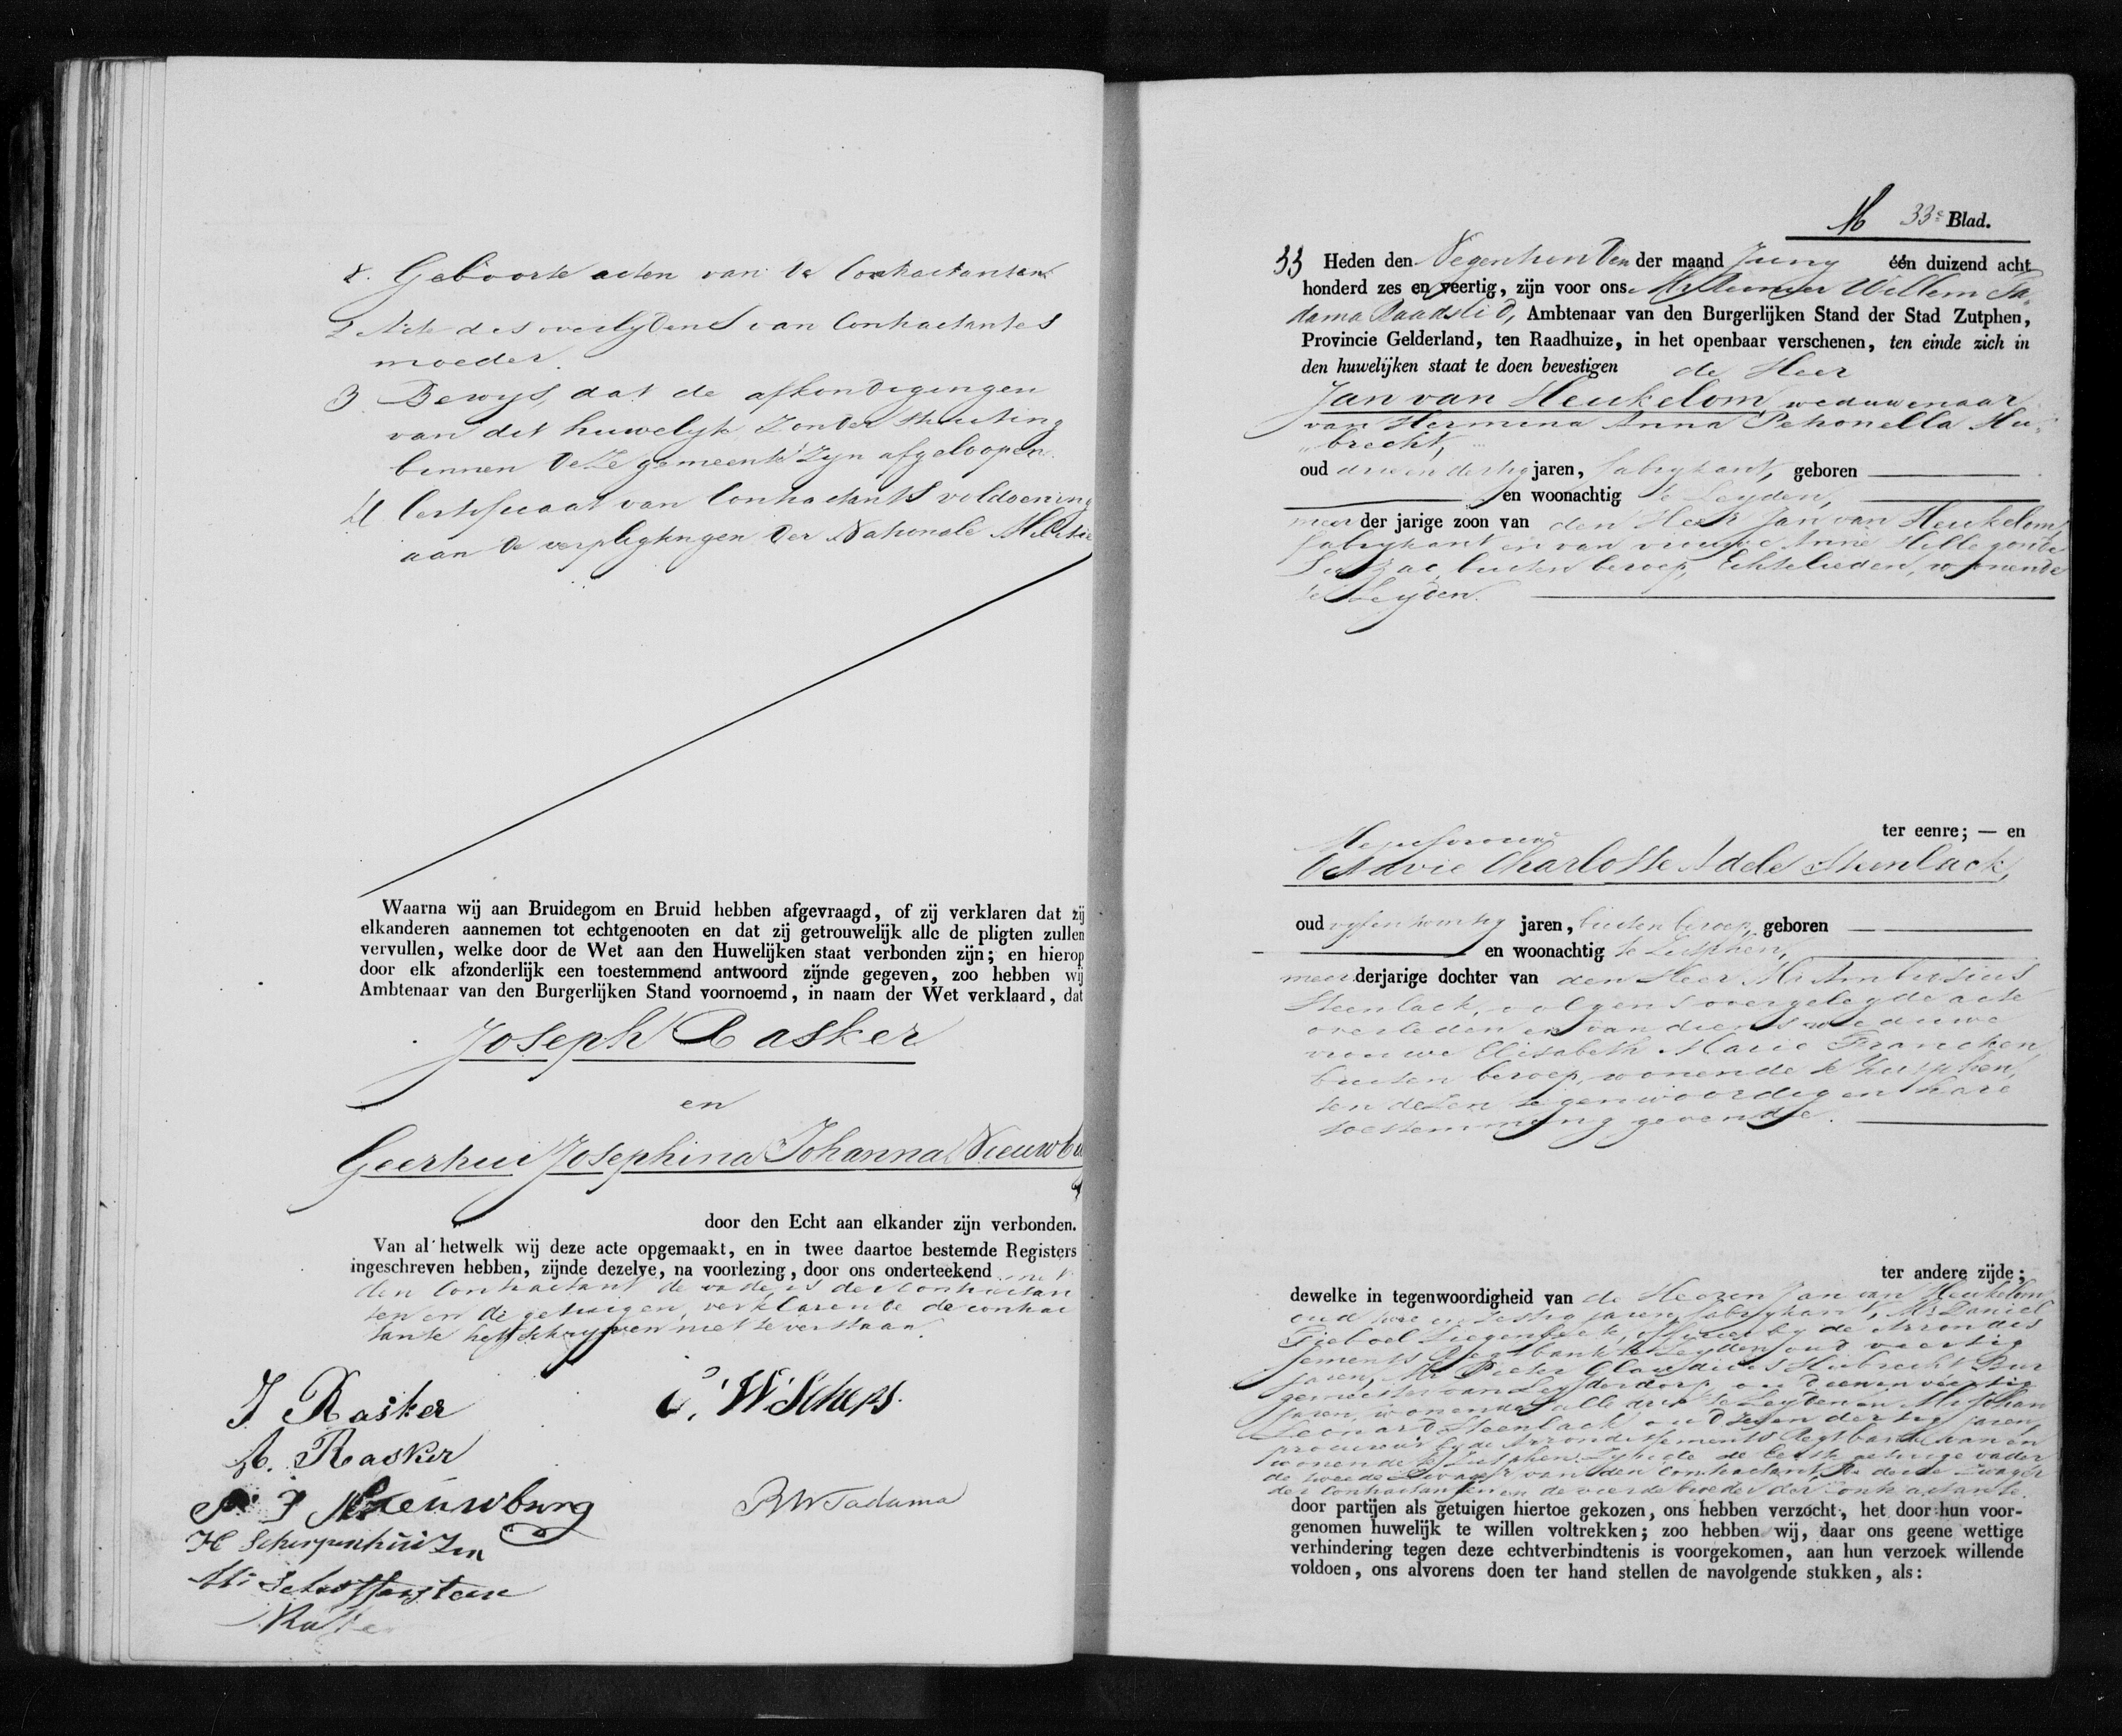 1. Geboorte acten van de Contractanten
2 Acte des overlydens van Contractantes
moeder.
3 Bewys, dat de afkondigingen
van dit huwelyk zonder stuiting
binnen deze gemeente zyn afgeloopen.
4 Certificaat van Contractants voldoening
aan de verpligtingen der Nationale Militie
Waarna wij aan Bruidegom en Bruid hebben afgevraagd, of zij verklaren dat zij
elkanderen aannemen tot echtgenooten en dat zij getrouwelijk alle de pligten zullen
vervullen, welke door de Wet aan den Huwelijken staat verbonden zijn; en hierop
door elk afzonderlijk een toestemmend antwoord zijnde gegeven, zoo hebben wij
Ambtenaar van den Burgerlijken Stand voornoemd, in naam der Wet verklaard, dat
Joseph Rasker
en
Geertrui Josephina Johanna Nieuwbu
door den Echt aan elkander zijn verbonden.
Van al hetwelk wij deze acte opgemaakt, en in twee daartoe bestemde Registers
ingeschreven hebben, zijnde dezelve, na voorlezing, door ons onderteekend met
den Contractant de vaders der Contractan
ten en de getuigen, verklarende de contrac
tante het schryven niet te verstaan.
J Rasker
W Scheps.
A. Rasker
J Nieuwburg
RWTadama
H Scherpenhuizen
33e Blad.
33 Heden den Negentienden der maand Juny één duizend acht
honderd zes en veertig, zijn voor ons Mr Willem Ta
dama Raadslid, Ambtenaar van den Burgerlijken Stand der Stad Zutphen,
Provincie Gelderland, ten Raadhuize, in het openbaar verschenen, ten einde zich in
den huwelijken staat te doen bevestigen de Heer
Jan van Heukelom, weduwenaar
van Hermina Anna Petronella Hu
brecht,
oud drie en dertig jaren, fabrykant, geboren
en woonachtig te Leyden,
meerder jarige zoon van den Heer Jan van Heukelom,
fabrykant en van vrouwe Anne Hillegonde
Luzac, buiten beroep, Echtelieden, wonende
te Leyden.
ter eenre; — en
Mejufvrouw
Octavie Charlotte Adele Steenlack,
oud vyfentwintig jaren, buiten beroep, geboren
en woonachtig te Zutphen,
meerderjarige dochter van den Heer Mr Ambrosius
Steenlack, volgens overgelegde acte
overleden en van diens weduwe
vrouwe Elisabeth Marie Francken,
buiten beroep, wonende te Zutphen,
ten dezen tegenwoordig en hare
toestemming gevende.
ter andere zijde;
dewelke in tegenwoordigheid van de Heeren Jan van Heukelom,
oud twee en zestig jaren, fabrykant, Mr Daniel
Tieboel Siegenbeek, officier by de Arrondis
sements Regtbank te Leyden, oud veertig
jaren, Mr Pieter Claudius Hubrecht Bur
gemeester van Leyderdorp, oud eenenveertig
jaren, wonende alle drie te Leyden en Mr Johan
Leonard Steenlack oud zevenendertig jaren,
procureur by de Arrondissements Regtbank van en
wonende te Zutphen. Zynde de eerste getuige vader
de tweede Zwager van den Contractant, de derde Zwager
der Contractanten en de vierde broeder der Contractante.
door partijen als getuigen hiertoe gekozen, ons hebben verzocht, het door hun voor-
genomen huwelijk te willen voltrekken; zoo hebben wij, daar ons geene wettige
verhindering tegen deze echtverbindtenis is voorgekomen, aan hun verzoek willende
voldoen, ons alvorens doen ter hand stellen de navolgende stukken, als: